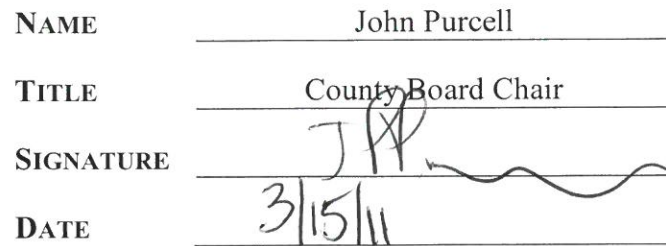 NAME John Purcell
TITLE County Board Chair
SIGNATURE
DATE 3/15/11